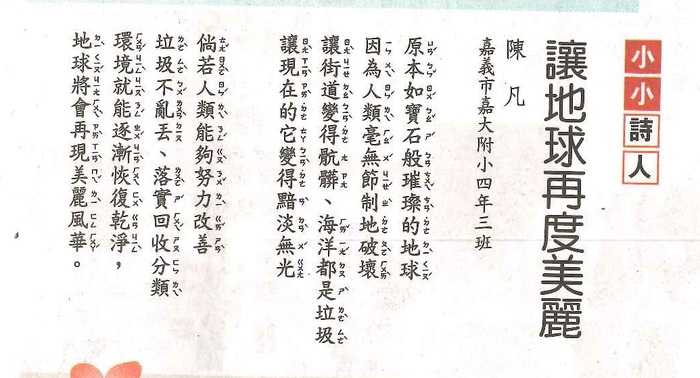 小小詩人
讓地球再度美麗
陳凡
嘉義市嘉大附小四年三班
原本如寶石般璀璨的地球
因為人類毫無節制地破壞
讓街道變得骯髒、海洋都是垃圾
讓現在的它變得黯淡無光
倘若人類能夠努力改善
垃圾不亂丟、落實回收分類
環境就能逐漸恢復乾淨，
地球將會再現美麗風華。